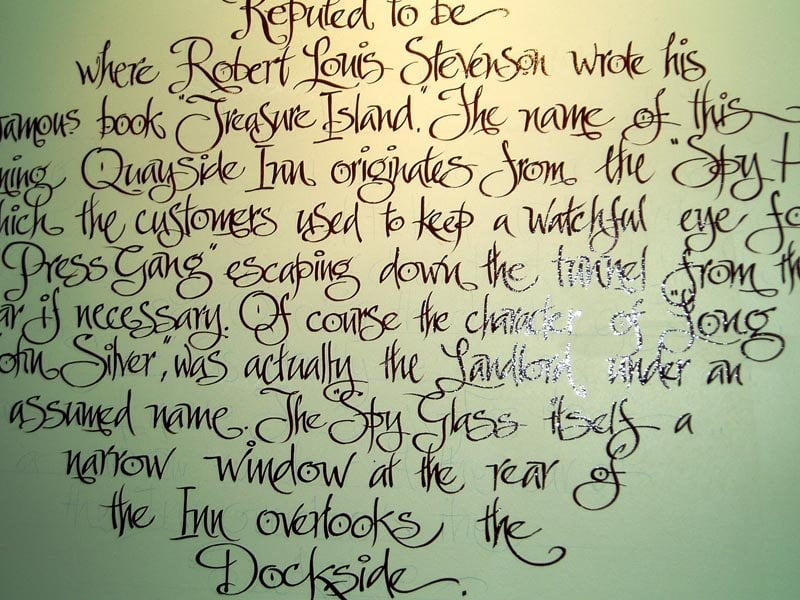 Reputed to be
where Robert Louis Stevenson wrote his
famous book "Treasure Island." The name of this
ning Quayside Inn originates from the "Spy H
hich the customers used to keep a watchful eye fo
Press Gang" escaping down the tunnel from th
ar if necessary. Of course the character of "Long
ohn Silver," was actually the Landlord under an
assumed name. The "Spy Glass itself a
narrow window at the rear of
the Inn overlooks the
Dockside.